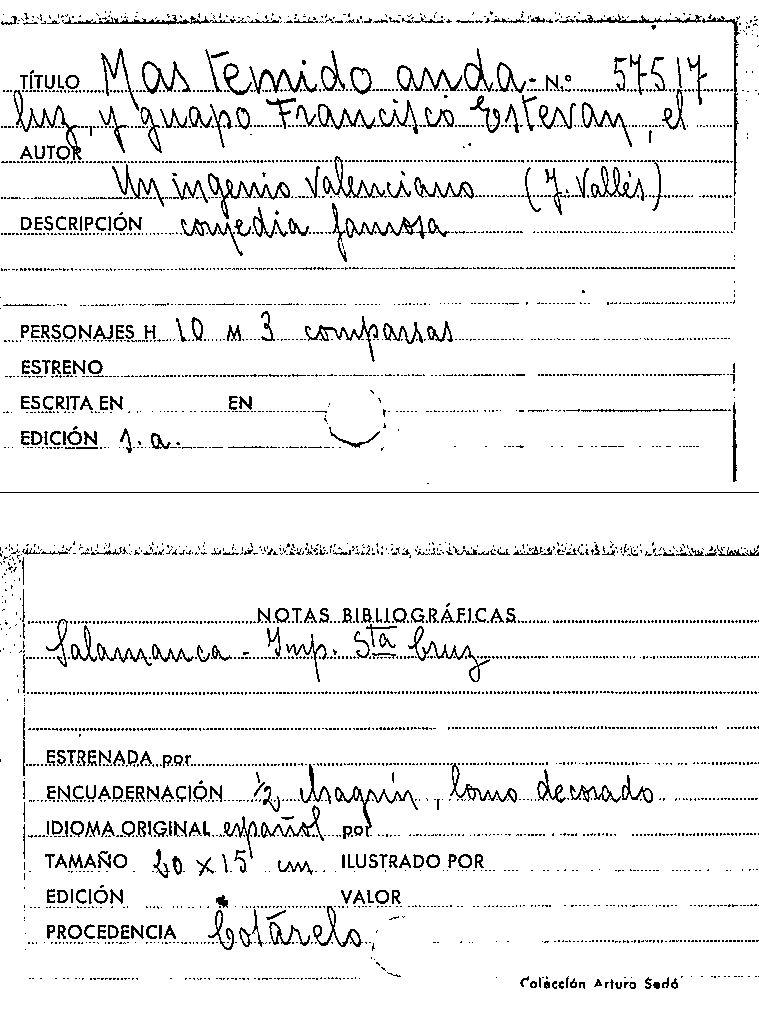 TÍTULO Mas temido anda- N.º 57517
luz, y guapo Francisco Estevan, el
AUTOR
Un ingenio valenciano (J. Vallés)
DESCRIPCIÓN comedia famosa
PERSONAJES H 10 M 3 comparsas
ESTRENO
ESCRITA EN EN
EDICIÓN s.a.
NOTAS BIBLIOGRÁFICAS
Salamanca - Imp. Sta Cruz
ESTRENADA por
ENCUADERNACIÓN ½ chagrín, lomo decorado
IDIOMA ORIGINAL español por
TAMAÑO 20 x 15 cm ILUSTRADO POR
EDICIÓN VALOR
PROCEDENCIA Cotarelo
Colección Arturo Sedó